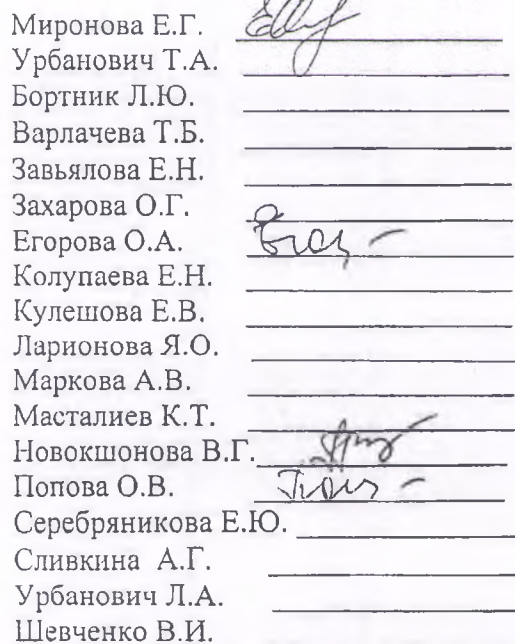 Миронова Е.Г.
Урбанович Т.А.
Бортник Л.Ю.
Варлачева Т.Б.
Завьялова Е.Н.
Захарова О.Г.
Егорова О.А.
Колупаева Е.Н.
Кулешова Е.В.
Ларионова Я.О.
Маркова А.В.
Масталиев К.Т.
Новокшонова В.Г.
Попова О.В.
Серебряникова Е.Ю.
Сливкина А.Г.
Урбанович Л.А.
Шевченко В.И.